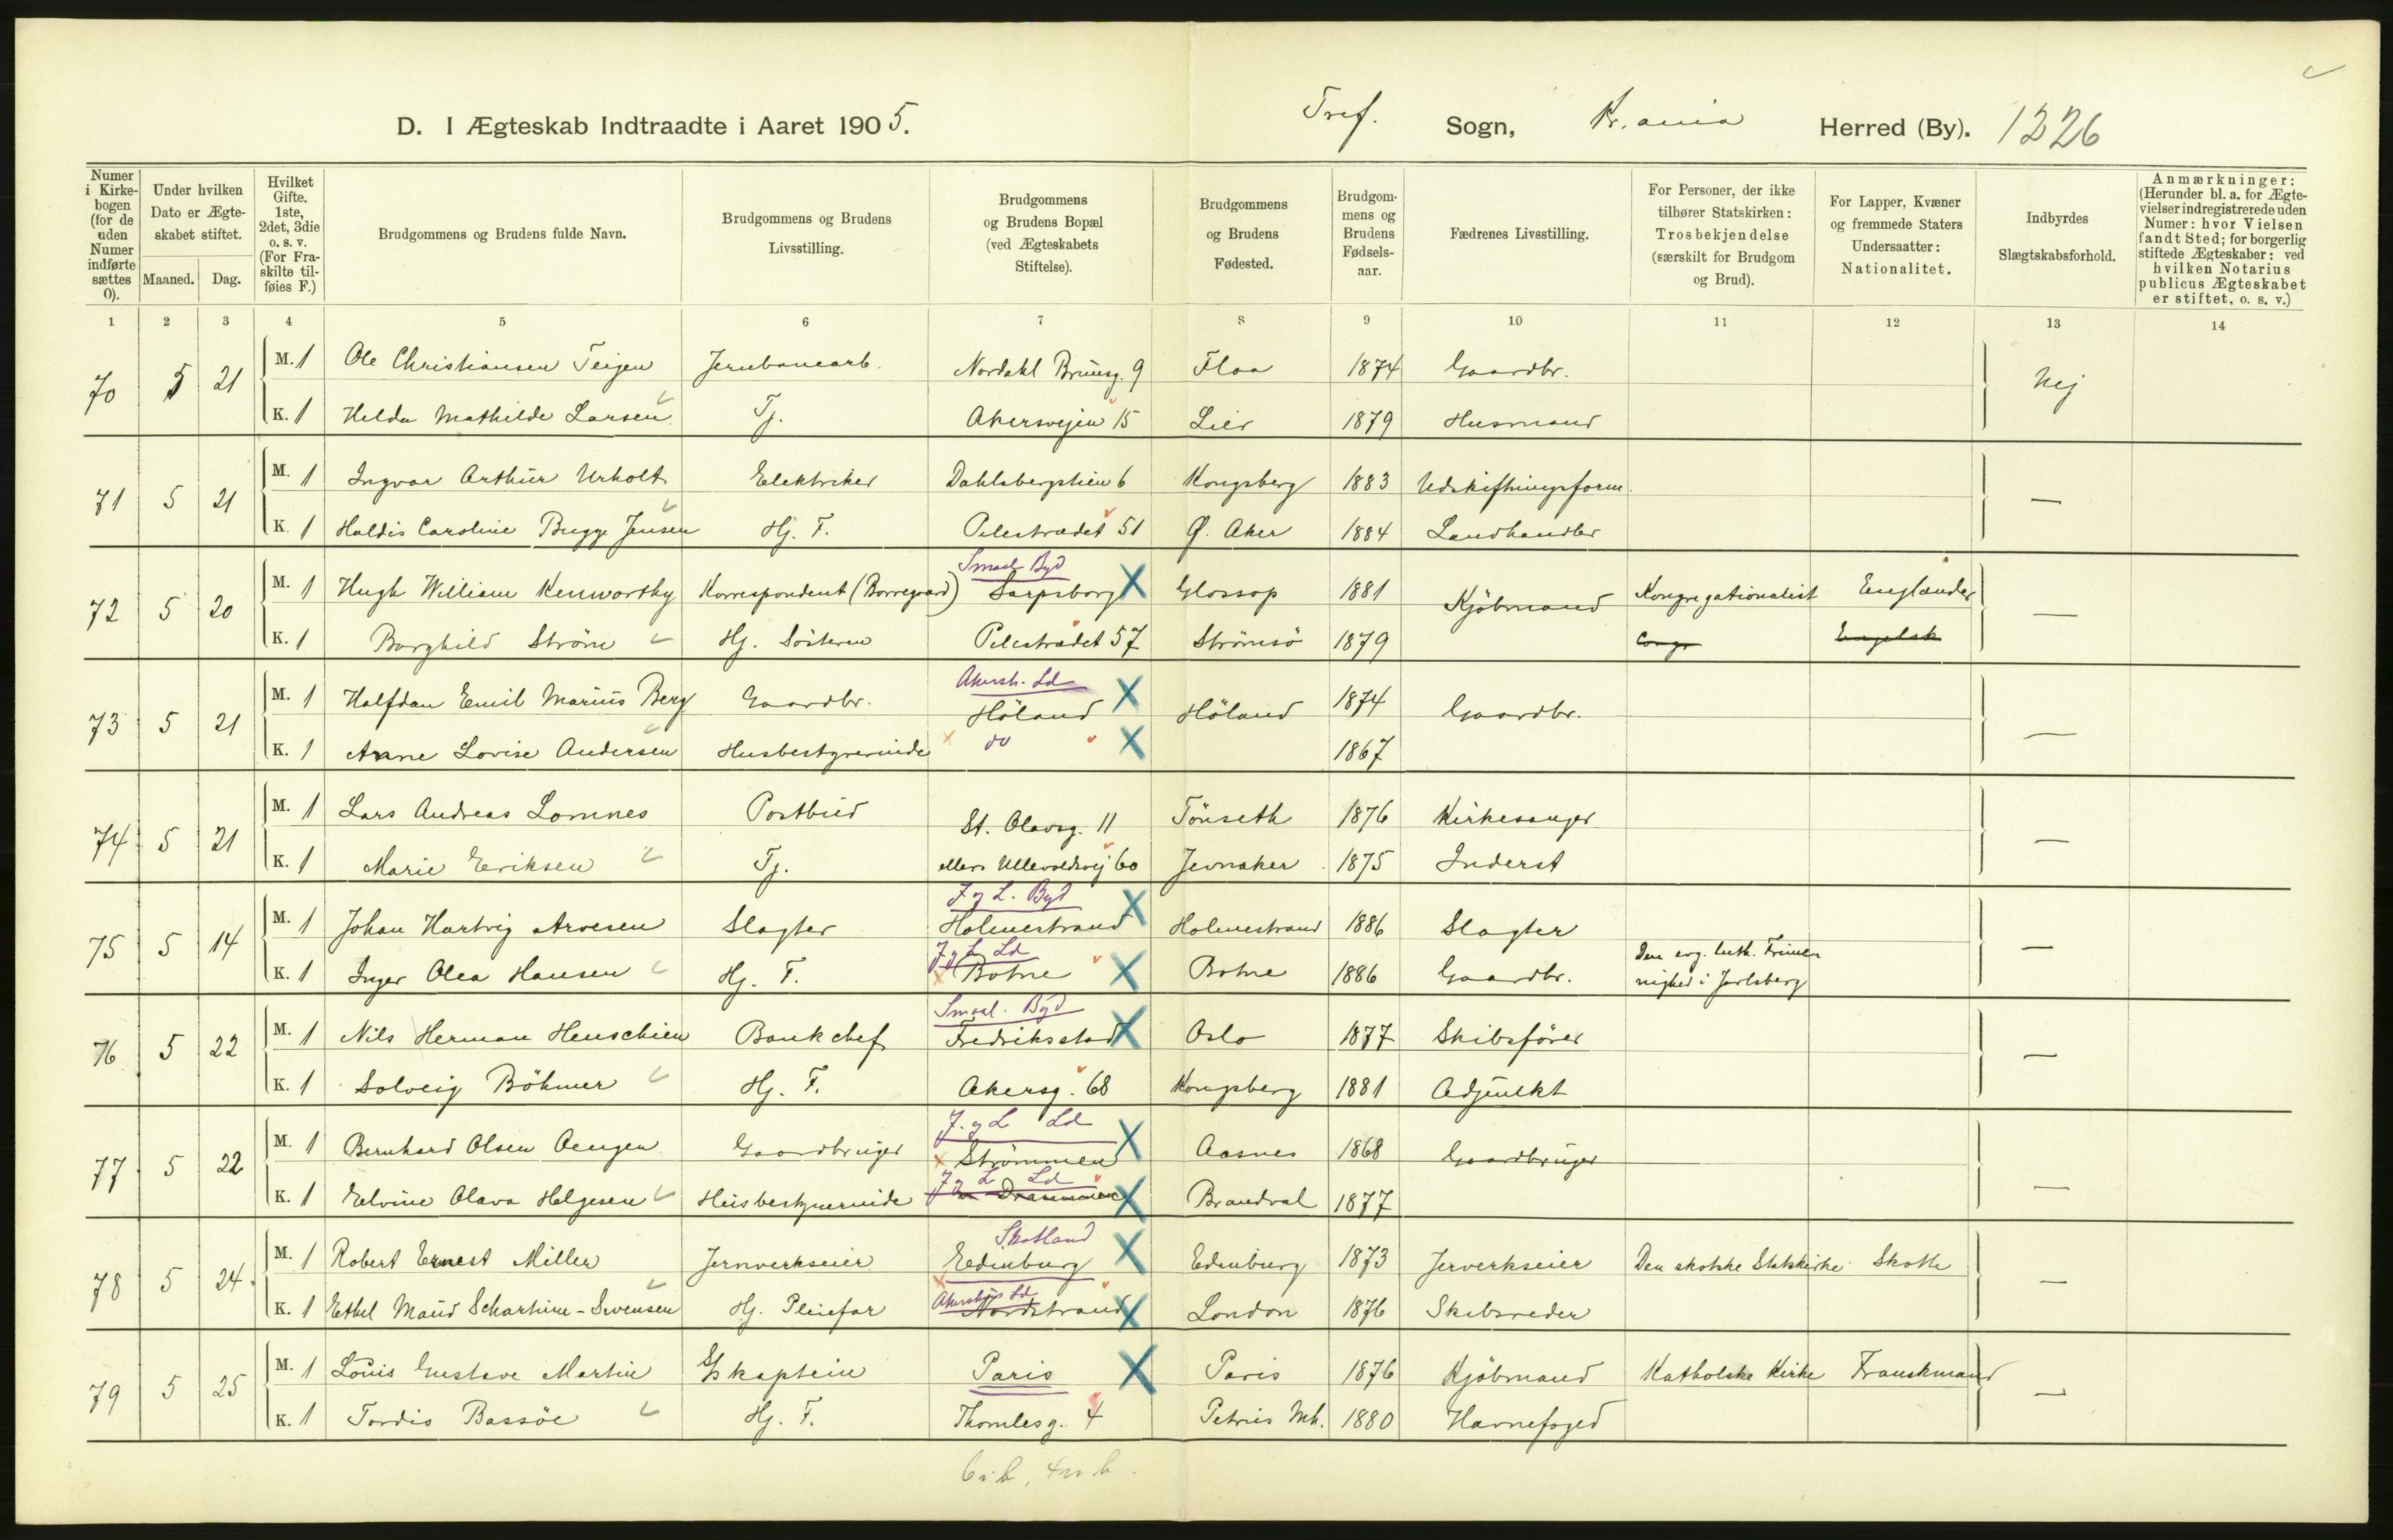 D. I Ægteskab Indtraadte i Aaret 1905. Tref. Sogn, Kr.ania Herred (By). 1226
Numer i Kirkebogen (for de uden Numer indførte sættes 0).
Under hvilken Dato er Ægteskabet stiftet.
Maaned. Dag.
Hvilket Gifte. 1ste, 2det, 3die o. s. v. (For Fraskilte tilføies F.)
Brudgommens og Brudens fulde Navn.
Brudgommens og Brudens Livsstilling.
Brudgommens og Brudens Bopæl (ved Ægteskabets Stiftelse).
Brudgommens og Brudens Fødested.
Brudgommens og Brudens Fødselsaar.
Fædrenes Livsstilling.
For Personer, der ikke tilhører Statskirken: Trosbekjendelse (særskilt for Brudgom og Brud).
For Lapper, Kvæner og fremmede Staters Undersaatter: Nationalitet.
Indbyrdes Slægtskabsforhold.
Anmærkninger: (Herunder bl. a. for Ægtevielser indregistrerede uden Numer: hvor Vielsen fandt Sted; for borgerlig stiftede Ægteskaber: ved hvilken Notarius publicus Ægteskabet er stiftet, o. s. v.)
1 2 3 4 5 6 7 8 9 10 11 12 13 14
70 5 21 M. 1 Ole Christiansen Teigen Jernbanearb. Nordahl Brunsg. 9 Flaa 1874 Gaardbr. Nej
K. 1 Helda Mathilde Larsen Tj. Akersvejen 15 Lier 1879 Husmand
71 5 21 M. 1 Ingvar Arthur Urholt Elektriker Dahlsbergstien 6 Kongsberg 1883 Udskiftningsform. —
K. 1 Haldis Caroline Bugge Jensen Hj. F. Pilestrædet 51 Ø. Aker 1884 Landhandler
Smaal Byd
72 5 20 M. 1 Hugh William Kenworthy Korrespondent (Borregaard) Sarpsborg Glossop 1881 Kjöbmand Kongregationalist Englænder —
K. 1 Borghild Ström Hj. Söstren Pilestrædet 57 Strömsö 1879 Congr Engelsk
Akersh. Ld
73 5 21 M. 1 Halfdan Emil Marius Berg Gaardbr. Höland Höland 1874 Gaardbr. —
K. 1 Anne Lovise Andersen Husbestyrerinde do 1867
74 5 21 M. 1 Lars Andreas Lomnes Postbud St. Olavsg. 11 Tönseth 1876 Kirkesanger —
K. 1 Marie Eriksen Tj. ellers Ullevoldsvej 60 Jevnaker 1875 Inderst
J og L. Byd
75 5 14 M. 1 Johan Hartvig Arvesen Slagter Holmestrand Holmestrand 1886 Slagter —
J og L Ld
K. 1 Inger Olea Hansen Hj. F. Botne Botne 1886 Gaardbr. Den evg. luth. Frimenighed i Jarlsberg
Smaal. Byd
76 5 22 M. 1 Nils Herman Henschien Bankchef Fredriksstad Oslo 1877 Skibsförer —
K. 1 Solveig Böhmer Hj. F. Akersg. 68 Kongsberg 1881 Adjunkt
J. og L Ld
77 5 22 M. 1 Bernhard Olsen Aengen Gaardbruger Strömmen Aasnes 1868 Gaardbruger —
J og L Ld
K. 1 Elvine Olava Helgesen Husbestyrerinde Drammen Brandval 1877
Skotland
78 5 24. M. 1 Robert Ernest Miller Jernverkseier Edinburg Edinburg 1873 Jerverkseier Den skotske Statskirke Skotte —
Akershus Ld
K. 1 Ethel Maud Schartum-Svensen Hj. Pleiefar Nordstrand London 1876 Skibsreder
79 5 25 M. 1 Louis Gustave Martin Gskaptein Paris Paris 1876 Kjöbmand Katholske Kirke Franskmand —
K. 1 Tordis Bassöe Hj. F. Thomlesg. 4 Petrus Mh. 1880 Havnefoged
6 i b, 4 u b.